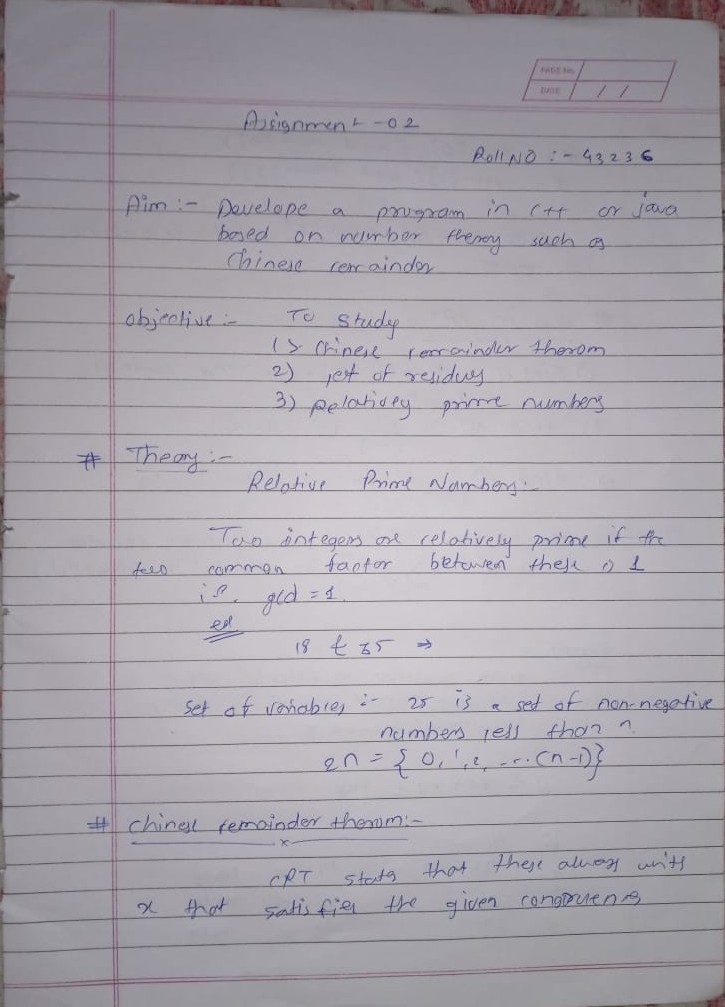 PAGE No.
DATE / /
Assignment -02
Roll NO :- 43236
Aim :- Develope a program in C++ or java
based on number theroy such as
Chinese remainder
objective :- To study
1) Chinese remainder therom
2) set of residues
3) Relatively prime numbers
# Theory :-
Relative Prime Numbers:-
Two integers are relatively prime if the
common factor between these is 1
i.e. gcd = 1.
ex
18 & 35 ⇒
Set of variables :- 25 is a set of non-negative
numbers less than n
2n = { 0, 1, 2, --- (n-1)}
# Chinese remainder therom:-
x
CRT states that these always
x that satisfies the given congruence